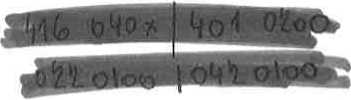 416 040x | 401 0200
022 0100 | 042 0100